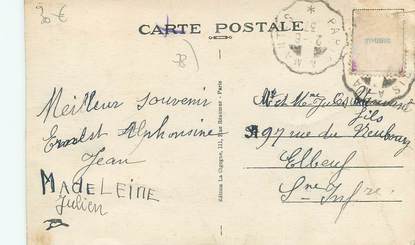 30 €
CARTE POSTALE
Meilleur souvenir
Ernest Alphonsine
Jean
MADELEINE
Julien
Editions La Cigogne, 111, Rue Réaumur - Paris
Mr et Mme Jules
fils
97 rue du Neubourg
Elbeuf
Sne Infre